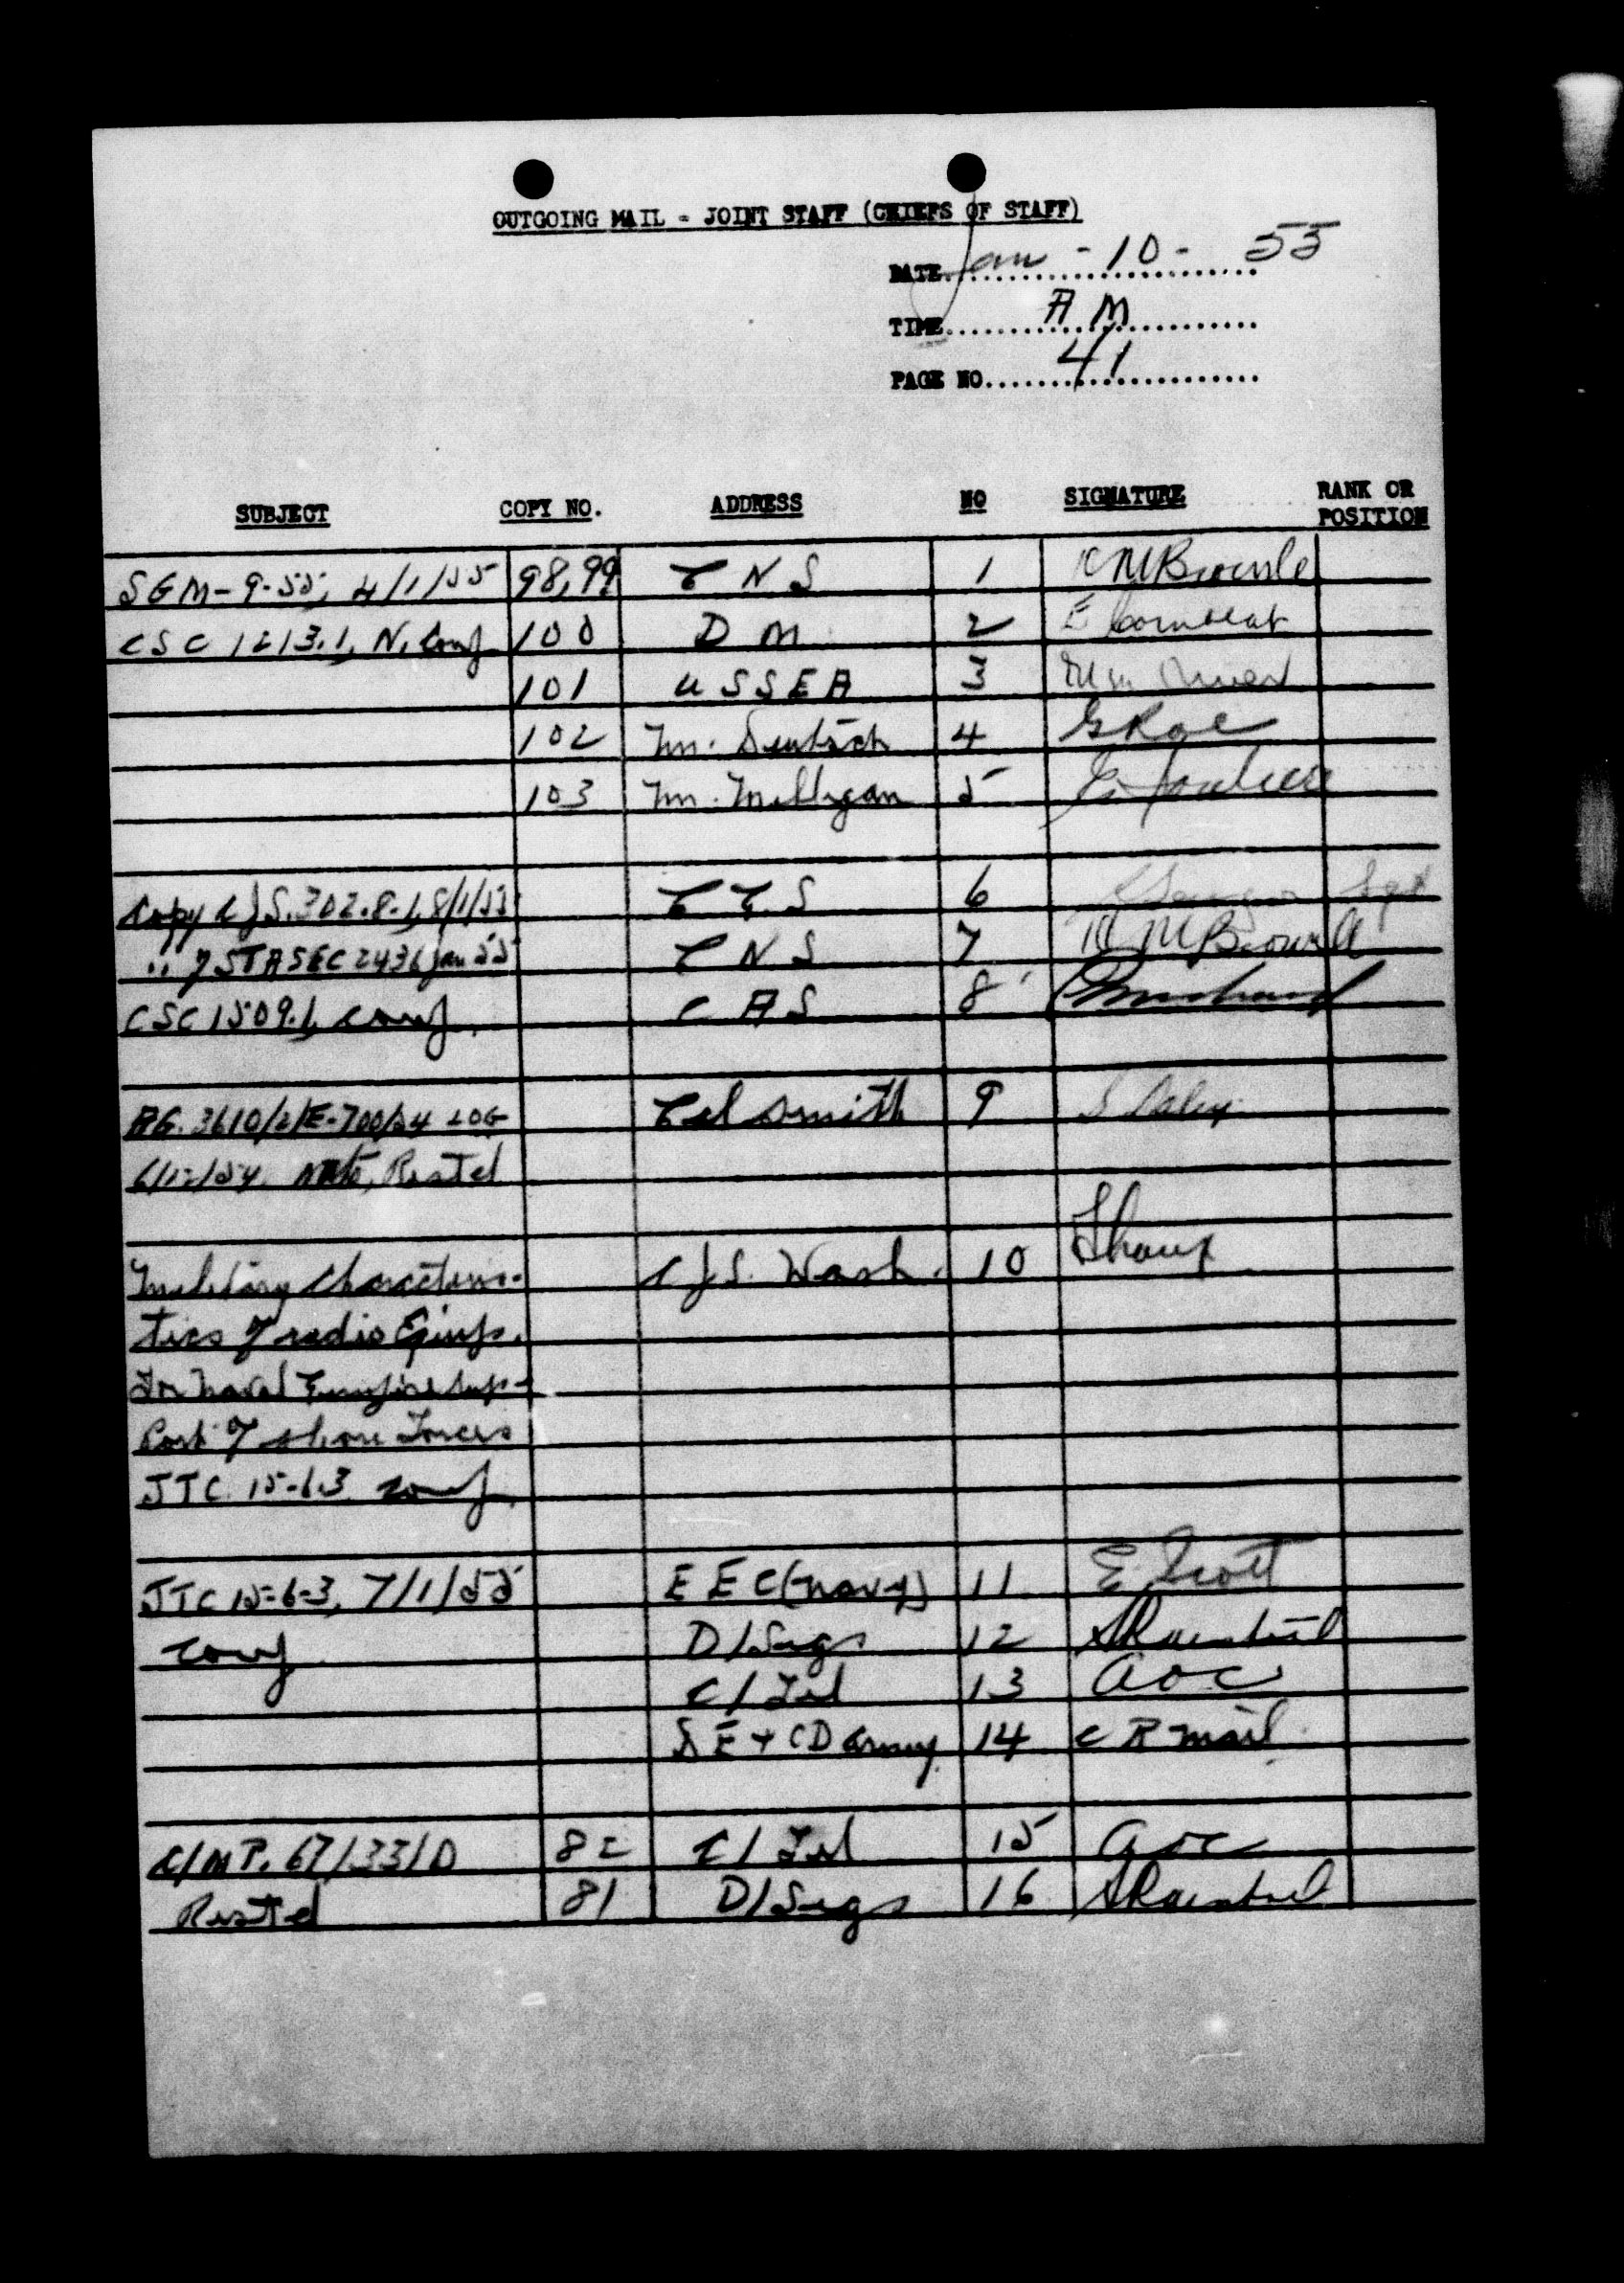 OUTGOING MAIL - JOINT STAFF (CHIEFS OF STAFF)
DATE Jan - 10 - 55
TIME A M
PAGE NO. 41
SUBJECT COPY NO. ADDRESS NO SIGNATURE RANK OR POSITION
SGM-9-55, 4/1/55 98,99 C N S 1
CSC 1213.1, N. Conf 100 D M 2
101 U S S E A 3
102 Mr. Deutsch 4
103 Mr. Milligan 5
Copy CJS. 302-8-1, 8/1/55 6 Sgt
" of STASEC 243 6 Jan 55 C N S 7
CSC 1509.1, conf. C A S 8
3610/2/E-700/54 LOG Col Smith 9
6/12/54 Restd
Military Characteris- CJS. Wash. 10 Sharp
tics of radio Equip.
For Naval Gunfire Sup-
Port of shore Forces
JTC. 15-6.3 conf.
JTC 15-6-3, 7/1/55 E E C (Navy) 11 E. Scott
conf D/Sigs 12
C/Tel 13 AOC
D E & CD Army 14 C R mail
C/MP. 67/33/D 82 C/Tel 15 AOC
Restd 81 D/Sigs 16